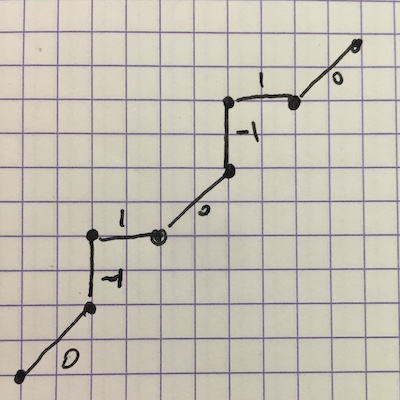 1
0
-1
1
0
-1
0